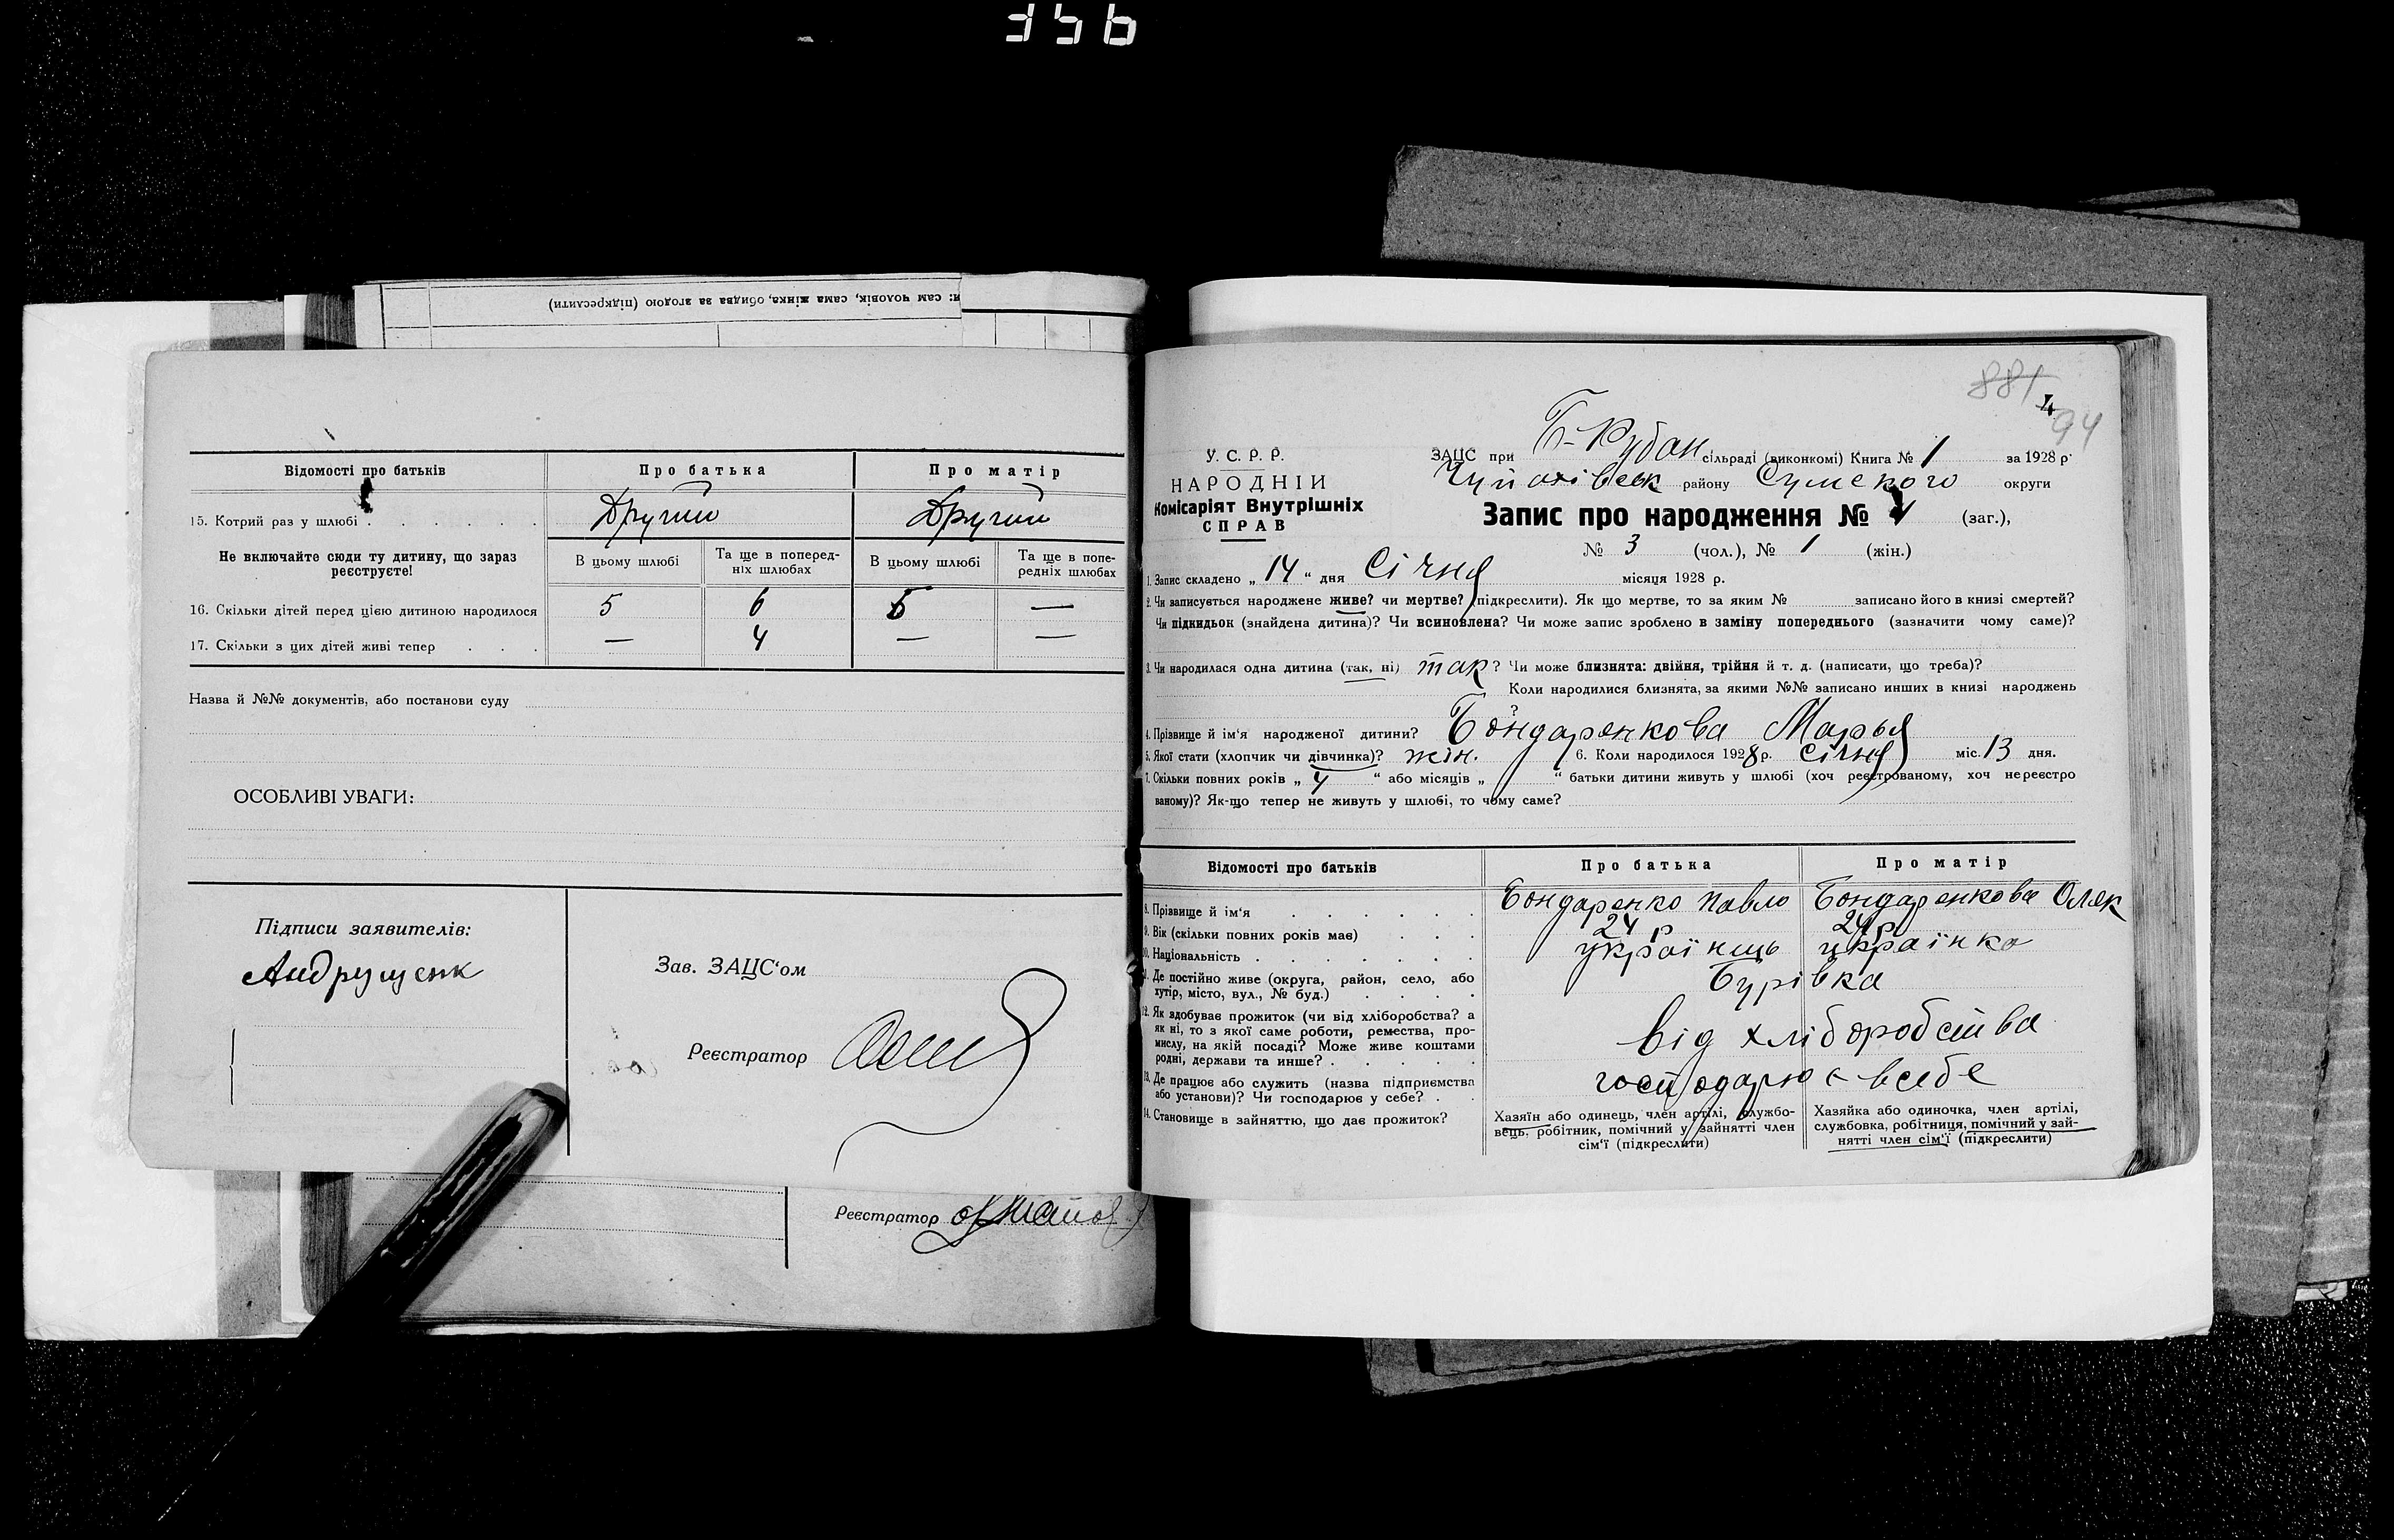 356
и: сам чоловік, сама жінка, обидва за згодою (підкреслити)
Відомості про батьків
Про батька
Про матір
15. Котрий раз у шлюбі
Другий
Другий
Не включайте сюди ту дитину, що зараз реєструєте!
В цьому шлюбі
Та ще в поперед-
ніх шлюбах
В цьому шлюбі
Та ще в попе-
редніх шлюбах
16. Скільки дітей перед цією дитиною народилося
5
6
5
—
17. Скільки з цих дітей живі тепер
—
4
—
—
Назва й №№ документів, або постанови суду
ОСОБЛИВІ УВАГИ:
Підписи заявителів:
Андрущенк
Зав. ЗАЦС'ом
Реєстратор
Реєстратор
881
4
94
У. С. Р. Р.
НАРОДНІЙ
Комісаріят Внутрішніх
СПРАВ
ЗАЦС при Б-Рубан сільраді (виконкомі) Книга № 1 за 1928 р.
району Сумского округи
Запис про народження № 4 (заг.),
№ 3 (чол.), № 1 (жін.)
1. Запис складено „ 14 " дня Січня місяця 1928 р.
2. Чи записується народжене живе? чи мертве? (підкреслити). Як що мертве, то за яким № записано його в книзі смертей?
Чи підкидьок (знайдена дитина)? Чи всиновлена? Чи може запис зроблено в заміну попереднього (зазначити чому саме)?
3. Чи народилася одна дитина (так, ні) так? Чи може близнята: двійня, трійня й т. д. (написати, що треба)?
Коли народилися близнята, за якими №№ записано инших в книзі народжень
?
4. Прізвище й ім'я народженої дитини? Бондаренкова Марья
5. Якої стати (хлопчик чи дівчинка)? жін. 6. Коли народилося 1928 р. Січня міс. 13 дня.
7. Скільки повних років „ 4 " або місяців „ " батьки дитини живуть у шлюбі (хоч реєстрованому, хоч нереєстро
ваному)? Як-що тепер не живуть у шлюбі, то чому саме?
Відомості про батьків
Про батька
Про матір
8. Прізвище й ім'я
Бондаренко Павло
Бондаренкова Олек
9. Вік (скільки повних років має)
24 р
24 р
10. Національність
українець
українка
11. Де постійно живе (округа, район, село, або
хутір, місто, вул., № буд.)
Бурівка
12. Як здобуває прожиток (чи від хліборобства? а
як ні, то з якої саме роботи, ремества, про-
мислу, на якій посаді? Може живе коштами
родні, держави та инше?
від хліборобства
13. Де працює або служить (назва підприємства
або установи)? Чи господарює у себе?
господарює в себе
14. Становище в зайняттю, що дає прожиток?
Хазяїн або одинець, член артілі, службо-
вець, робітник, помічний у зайнятті член
сім'ї (підкреслити)
Хазяйка або одиночка, член артілі,
службовка, робітниця, помічний у зай-
нятті член сім'ї (підкреслити)